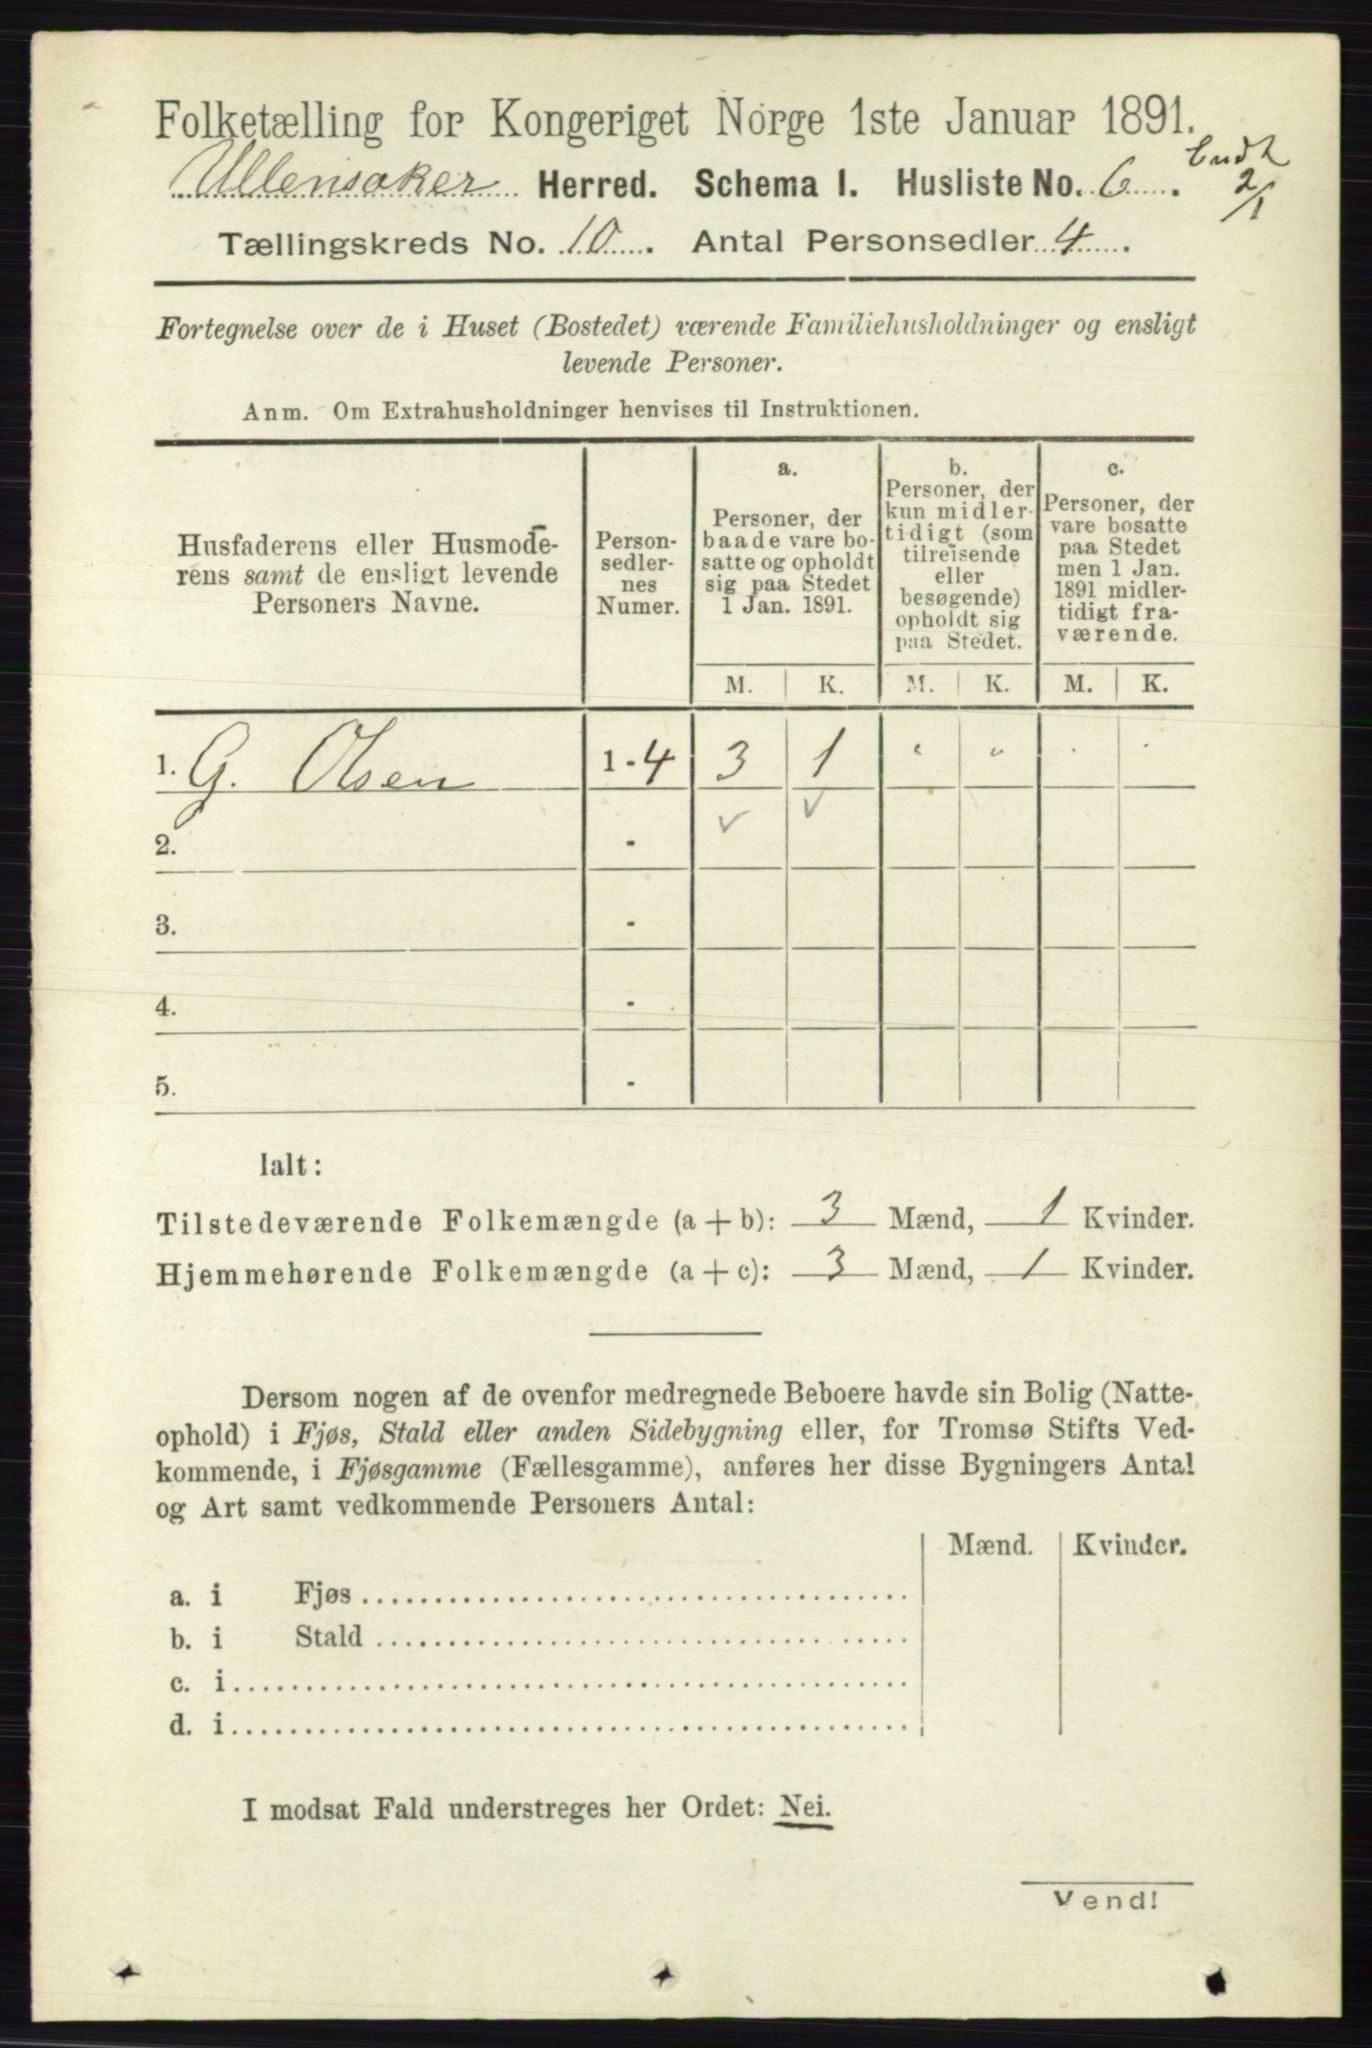 Folketælling for Kongeriget Norge 1ste Januar 1891.
Ullensaker Herred. Schema I. Husliste No. 6.
2/1
Tællingskreds No. 10. Antal Personsedler 4.
Fortegnelse over de i Huset (Bostedet) værende Familiehusholdninger og ensligt
levende Personer.
Anm. Om Extrahusholdninger henvises til Instruktionen.
Husfaderens eller Husmode-
rens samt de ensligt levende
Personers Navne.
Person-
sedler-
nes
Numer.
a.
Personer, der
baade vare bo-
satte og opholdt
sig paa Stedet
1 Jan. 1891.
b.
Personer, der
kun midler-
tidigt (som
tilreisende
eller
besøgende)
opholdt sig
paa Stedet.
c.
Personer, der
vare bosatte
paa Stedet
men 1 Jan.
1891 midler-
tidigt fra-
værende.
M. K. M. K. M. K.
1. G. Olsen 1-4 3 1 " " " "
2. - ✓ ✓
3. -
4. -
5. -
Ialt:
Tilstedeværende Folkemængde (a + b): 3 Mænd, 1 Kvinder.
Hjemmehørende Folkemængde (a + c): 3 Mænd, 1 Kvinder.
Dersom nogen af de ovenfor medregnede Beboere havde sin Bolig (Natte-
ophold) i Fjøs, Stald eller anden Sidebygning eller, for Tromsø Stifts Ved-
kommende, i Fjøsgamme (Fællesgamme), anføres her disse Bygningers Antal
og Art samt vedkommende Personers Antal:
Mænd. Kvinder.
a. i Fjøs
b. i Stald
c. i
d. i
I modsat Fald understreges her Ordet: Nei.
Vend!